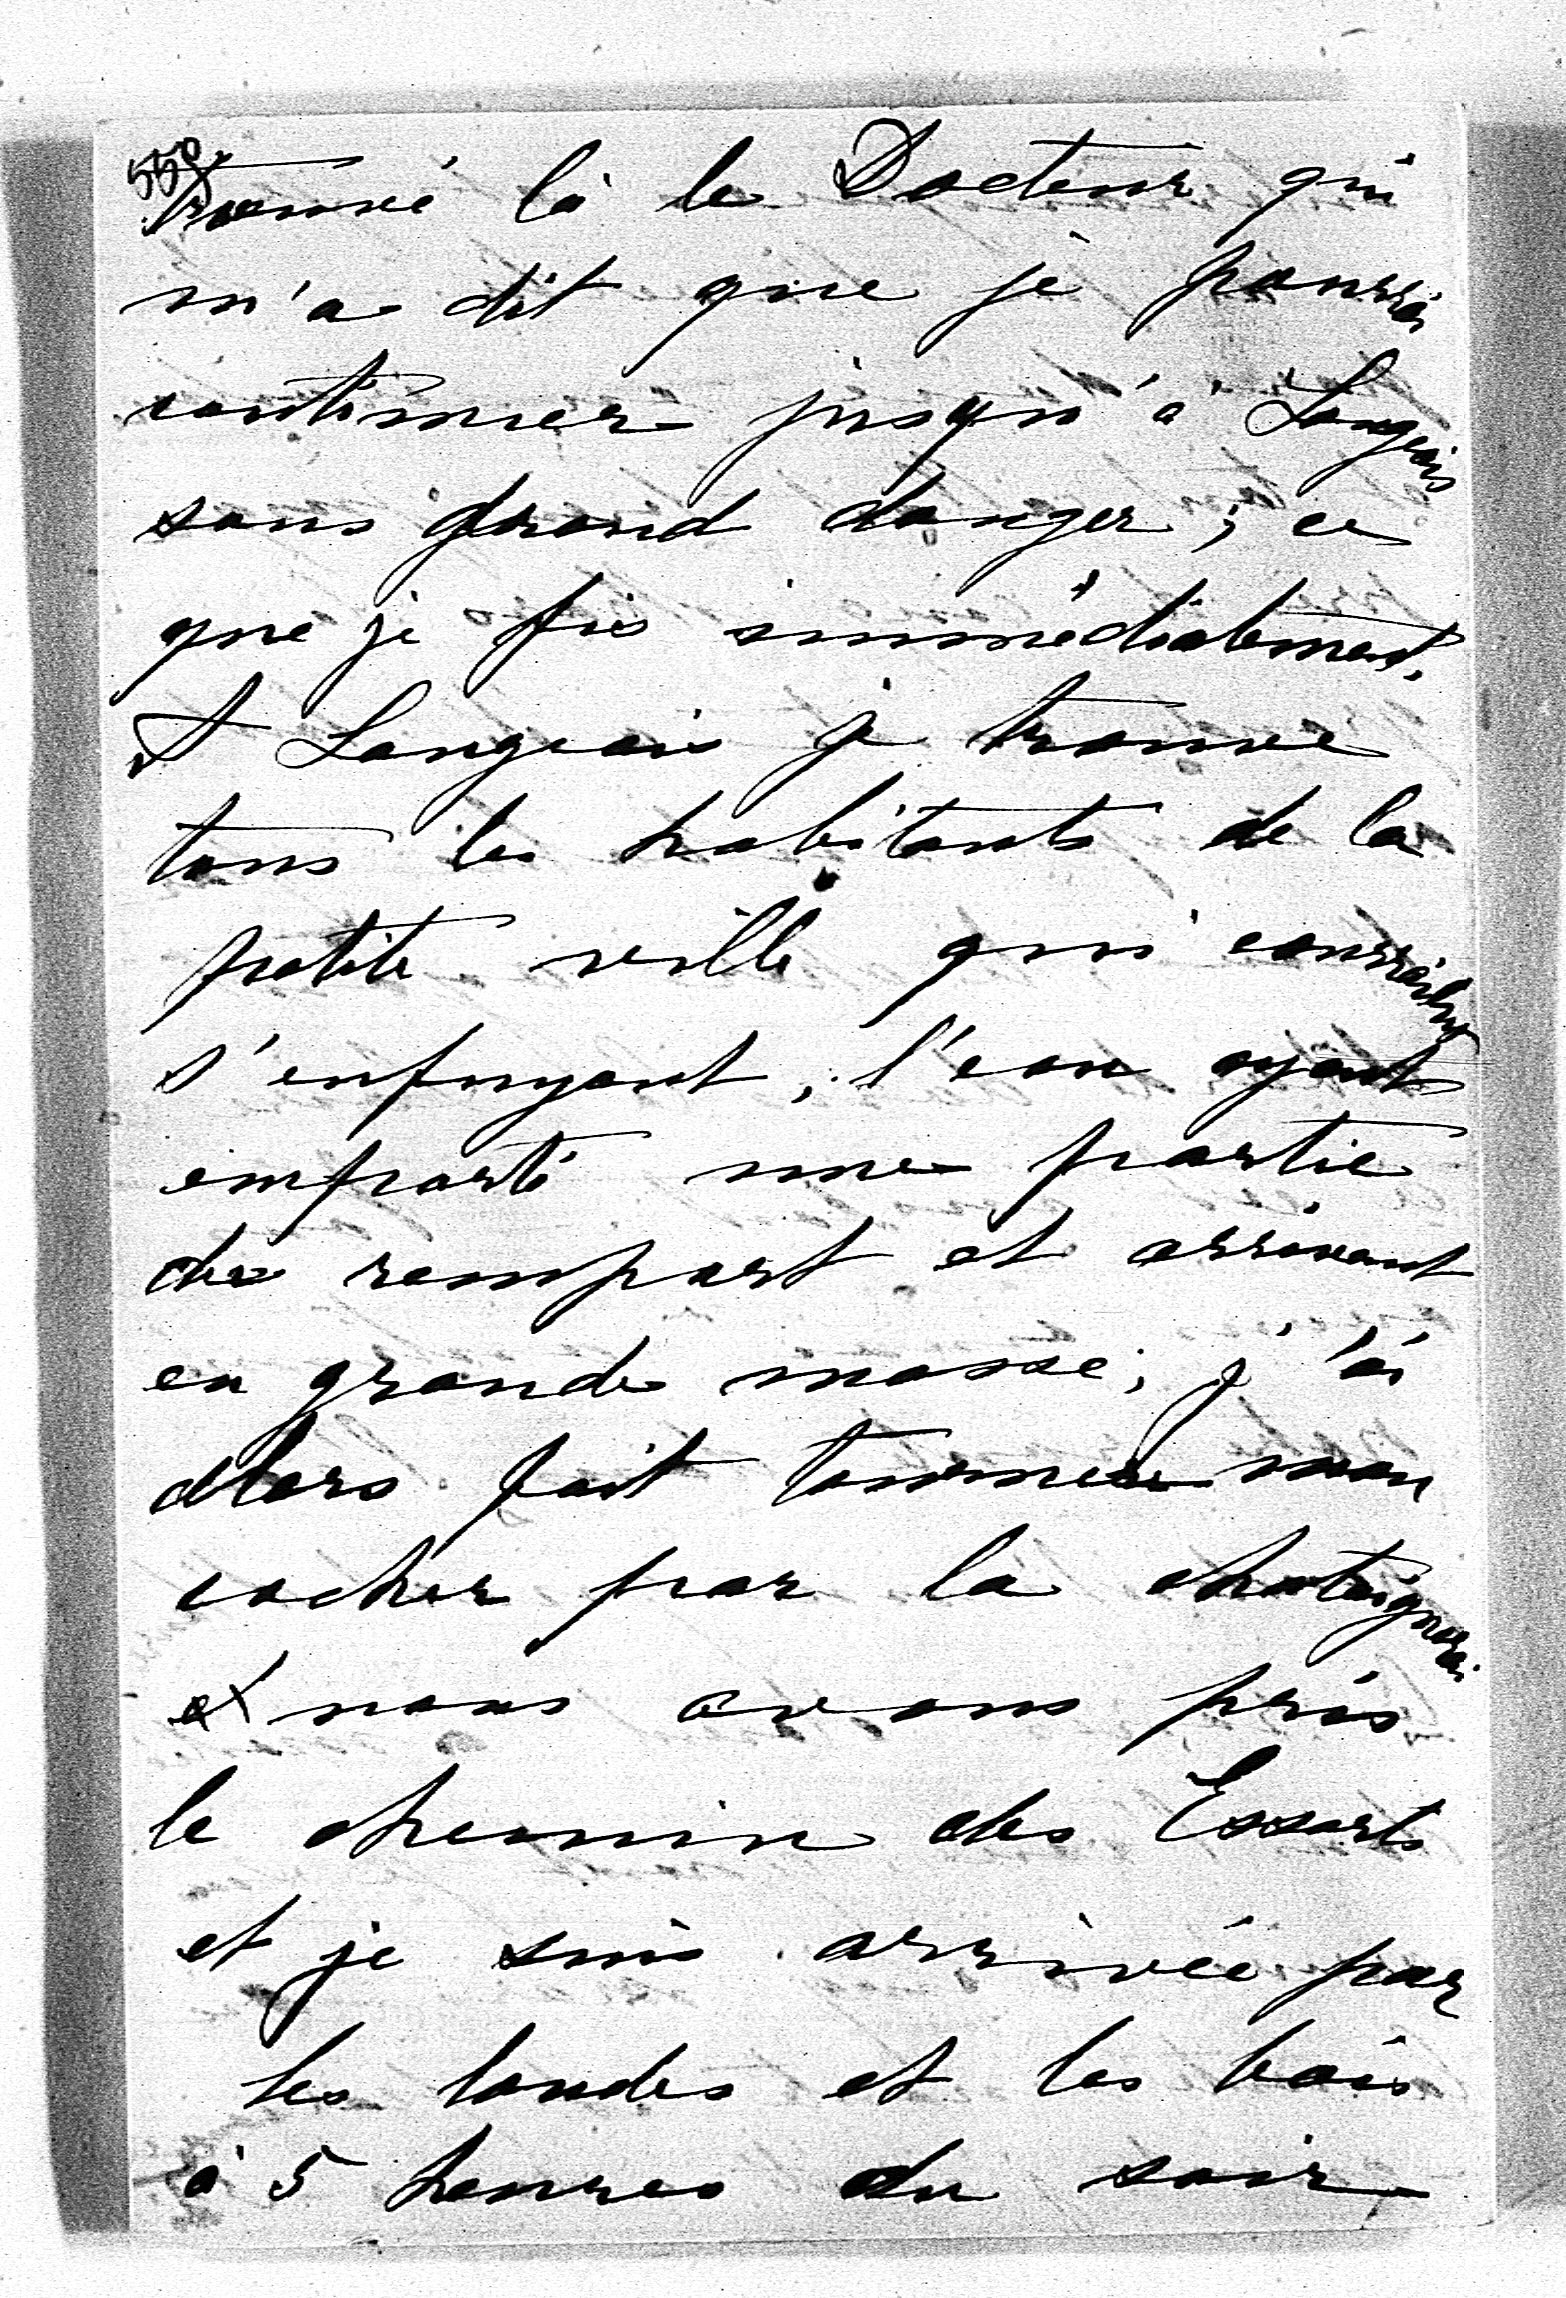 550
trouvé là le Docteur qui
m'a dit que je pourrai
continuer jusqu'à Langeais
sans grand danger ; ce
que je fis immédiatement.
A Langeais je trouve
tous les habitants de la
petite ville qui couraient
s'enfuyant, l'eau ayant
emporté une partie
du rempart et arrivant
en grande masse ; j'ai
alors fait tourner mon
cocher par la chataigneraie
et nous avons pris
le chemin des Essarts
et je suis arrivée par
les landes et les bois
à 5 heures du soir